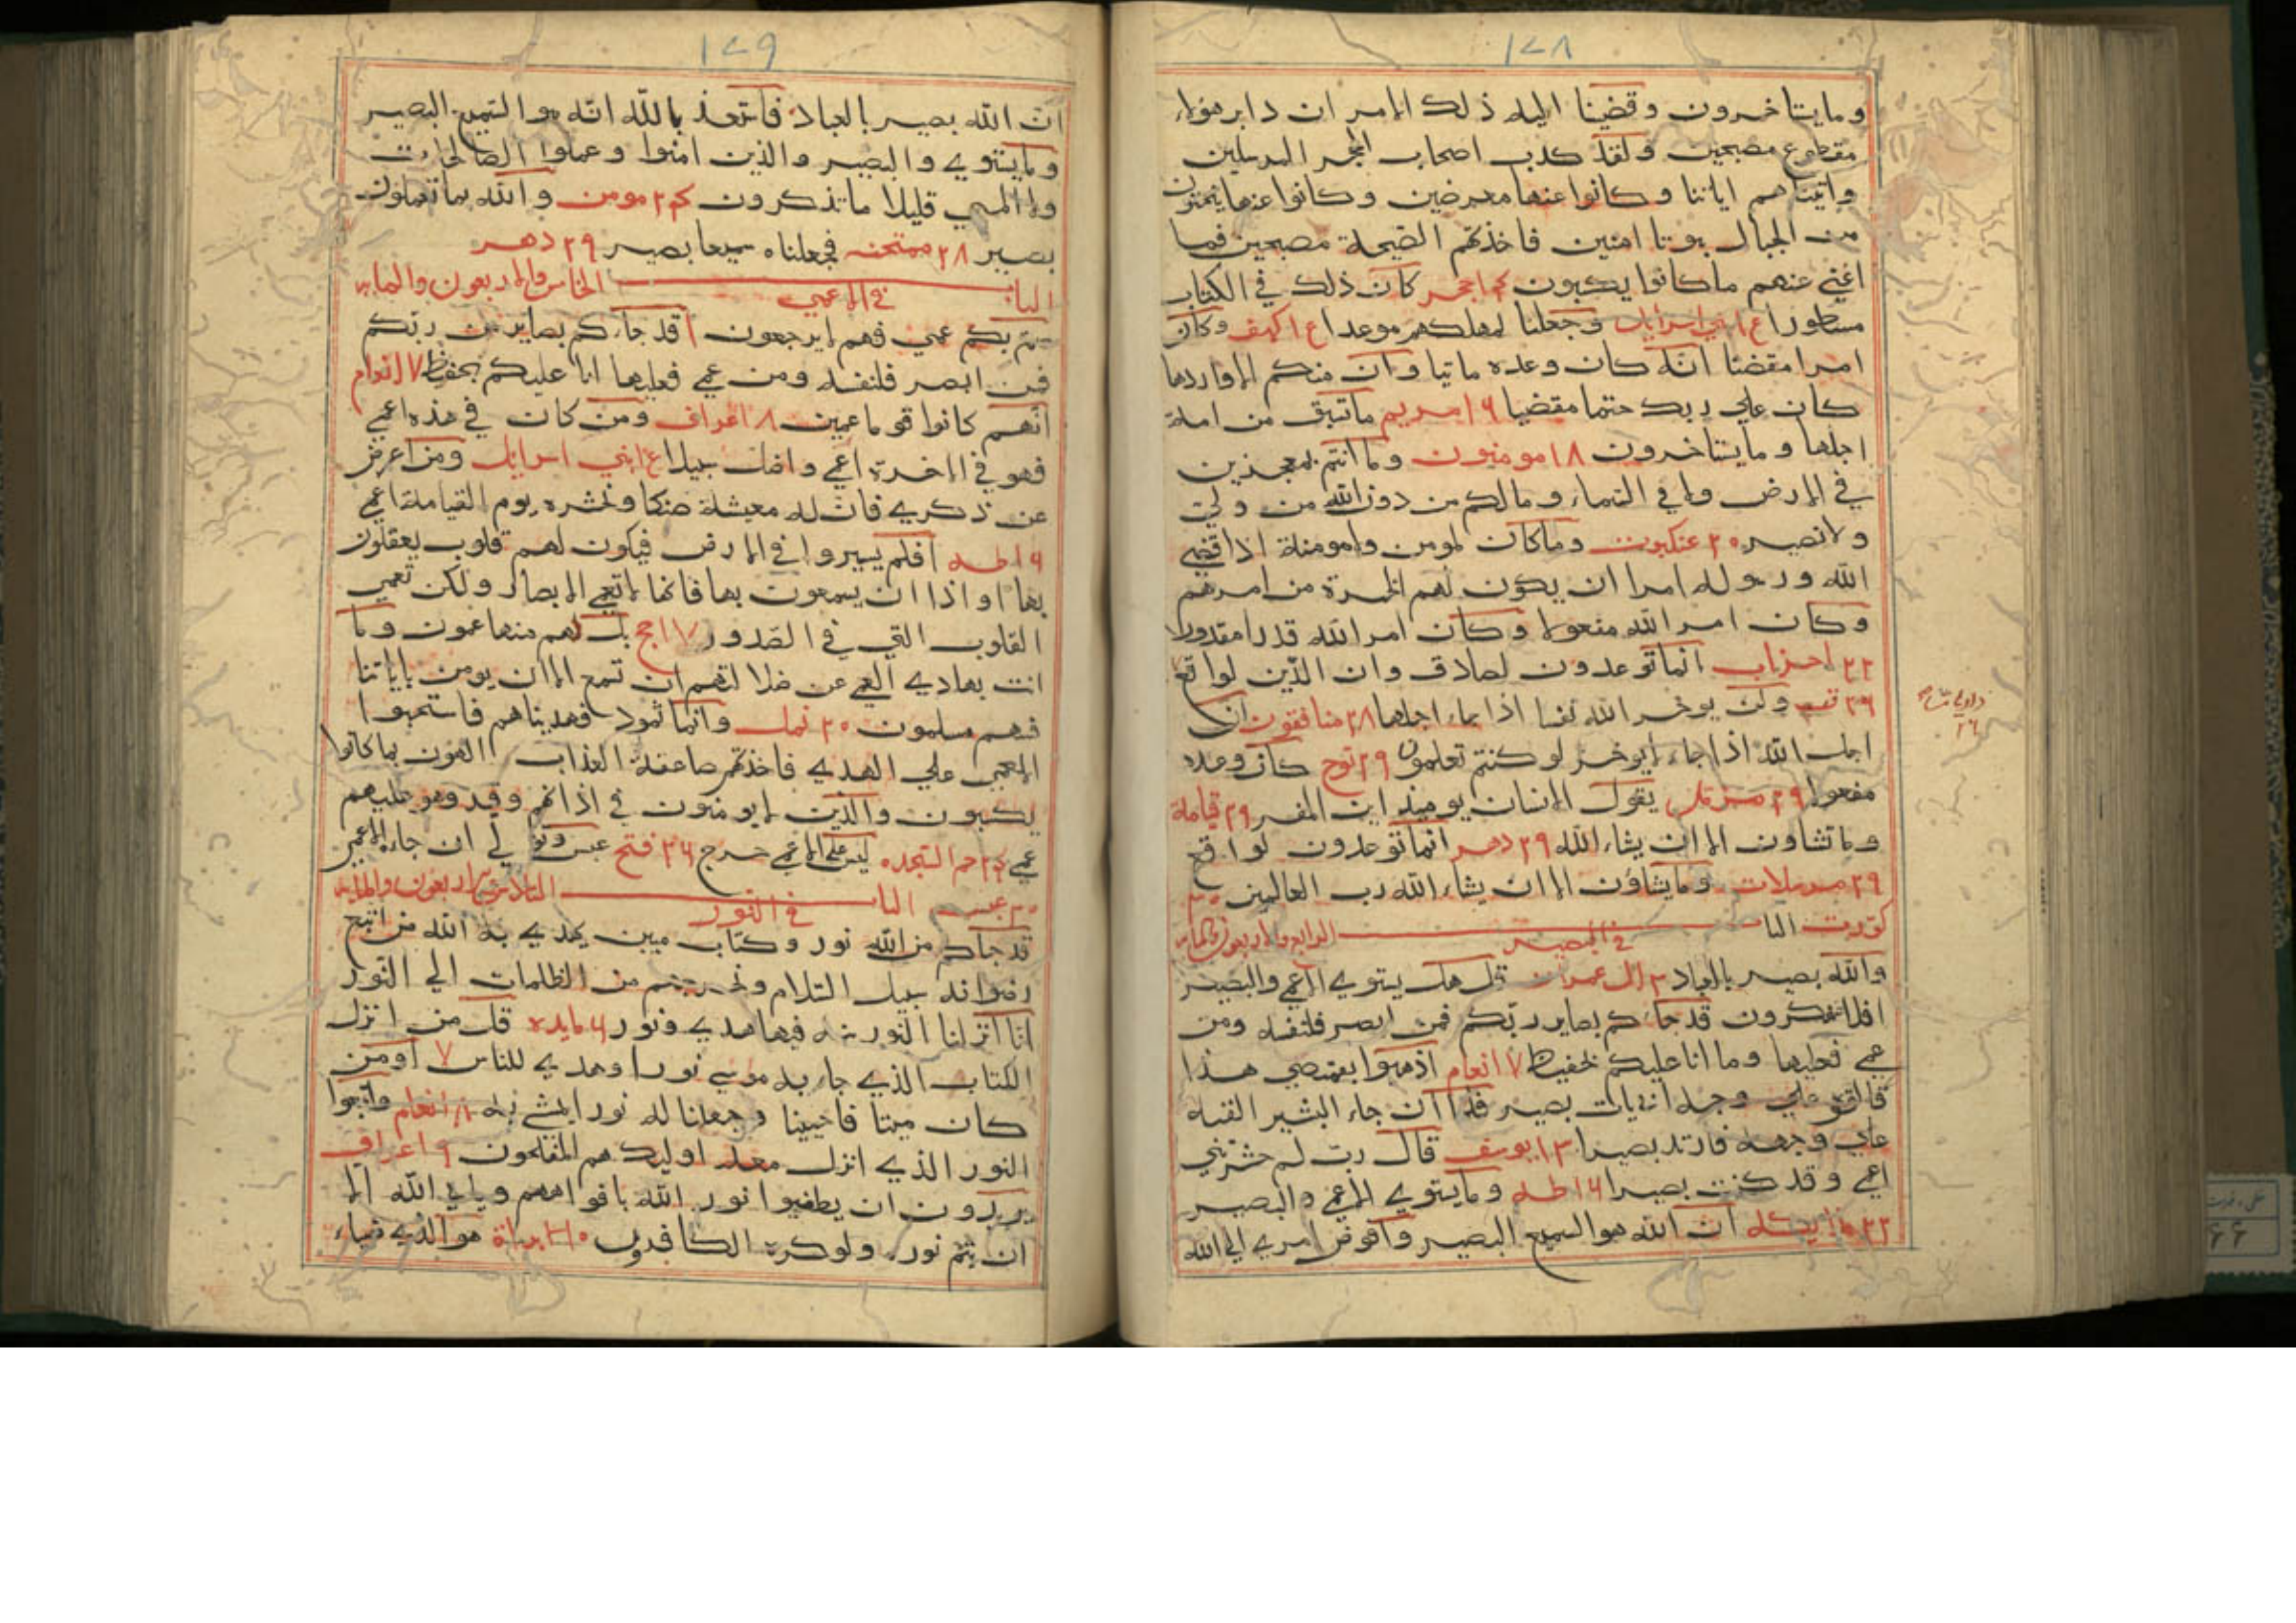 ١٤٨
وما يستاخرون وقضينا اليه ذلك الامر ان دابر هولاء
مقطوع مصبحين ولقد كذب اصحاب الحجر المرسلين
واتيناهم اياتنا وكانوا عنها معرضين وكانوا عنها ينحتون
من الجبال بيوتا امنين فاخذتهم الصيحة مصبحين فما
اغني عنهم ما كانوا يكسبون حجر كان ذلك في الكتاب
مسطورا بني اسرايل وجعلنا لمهلكهم موعدا كهف وكان
امرا مقضيا انه كان وعده ماتيا وان منكم الا واردها
كان علي ربك حتما مقضيا ١٦ مريم ما تسبق من امة
اجلها وما يستاخرون ١٨ مومنون وما انتم بمعجزين
في الارض ولا في السماء وما لكم من دون الله من ولي
ولا نصير ٢٠ عنكبوت وما كان لمومن ولا مومنة اذا قضي
الله ورسوله امرا ان يكون لهم الخيرة من امرهم
وكان امر الله مفعولا وكان امر الله قدرا مقدورا
٢٢ احزاب انما توعدون لصادق وان الدين لواقع
٢٦ ولن يوخر الله نفسا اذا جاء اجلها ٢٨ منافقون ان
اجل الله اذا جاء لا يوخر لو كنتم تعلمون ٢٩ نوح كان وعده
مفعولا ٢٩ مزمل يقول الانسان يوميذ اين المفر ٢٩ قيامة
وما تشاون الا ان يشاء الله ٢٩ دهر انما توعدون لواقع
٢٩ مرسلات وما يشاؤن الا ان يشاء الله رب العالمين ٣٠
كورت الباب الرابع والاربعون والمايه
في البصير
والله بصير بالعباد ٣ ال عمران قل هل يستوي الاعمي والبصير
افلا تتفكرون قد جاءكم بصاير ربكم فمن ابصر فلنفسه ومن
عمي فعليها وما انا عليكم بحفيظ ٧ انعام اذهبوا بقميصي هذا
فالقوه علي وجه ابي يات بصير فلما ان جاء البشير القيه
علي وجهه فارتد بصيرا ١٣ يوسف قال رب لم حشرتني
اعمي وقد كنت بصيرا ١٦ طه وما يستوي الاعمي والبصير
٢٢ ان الله هو السميع البصير وافوض امري الي الله
١٤٩
ان الله بصير بالعباد فاستعذ بالله انه هو السميع البصير
وما يستوي والبصير والذين امنوا وعملوا الصالحات
ولا المسي قليلا ما تذكرون مومن والله بما تعملون
بصير ٢٨ ممتحنه فجعلناه سميعا بصير ٢٩ دهر
الباب الخامس والاربعون والمايه
في الاعمي
صم بكم عمي فهم لا يرجعون ١ قد جاءكم بصاير من ربكم
فمن ابصر فلنفسه ومن عمي فعليها انا عليكم بحفيظ ٧ انعام
انهم كانوا قوما عمين ٨ اعراف ومن كان في هذه اعمي
فهو في الاخرة اعمي واضل سبيلا بني اسرايل ومن اعرض
عن ذكري فان له معيشة ضنكا ونحشره يوم القيامة اعمي
١٦ طه افلم يسيروا في الارض فيكون لهم قلوب يعقلون
بها او اذان يسمعون بها فانها لا تعمي الابصار ولكن تعمي
القلوب التي في الصدور ١٧ حج بل هم منها عمون وما
انت بهادي العمي عن ضلالتهم ان تسمع الا ان يومن باياتنا
فهم مسلمون ٢٠ نمل وانما ثمود فهديناهم فاستحبوا
العمي علي الهدي فاخذتهم صاعقة العذاب الهون بما كانوا
يكسبون والذين لا يومنون في اذانهم وقر وهو عليهم
عمي حم السجده ليس علي الاعمي حرج ٢٦ فتح عبس وتولي ان جاءه الاعمي
٣٠ عبس الباب السادس والاربعون والمايه
في النور
قد جاكم من الله نور وكتاب مبين يهدي به الله من اتبع
رضوانه سبيل السلام ونخرجهم من الظلمات الي النور
انا انزلنا التوريه فيها هدي ونور ٦ مايده قل من انزل
الكتاب الذي جاء به موسي نورا وهدي للناس ٧ اومن
كان ميتا فاحيينا وجعلنا له نورا يمشي به ٨ انعام واتبعوا
النور الذي انزل معه اوليك هم المفلحون ٩ اعراف
يريدون ان يطفيوا نور الله بافواههم ويابي الله الا
ان يتم نوره ولو كره الكافرون ١٠ براة هو الذي ضياء